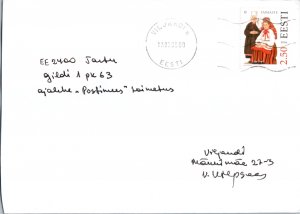 VILJANDI
EESTI
2.50 EESTI
EE2400 Tartu
Gildi 1 pk 63
ajalehe "Postimees" toimetus
Viljandi
27-3